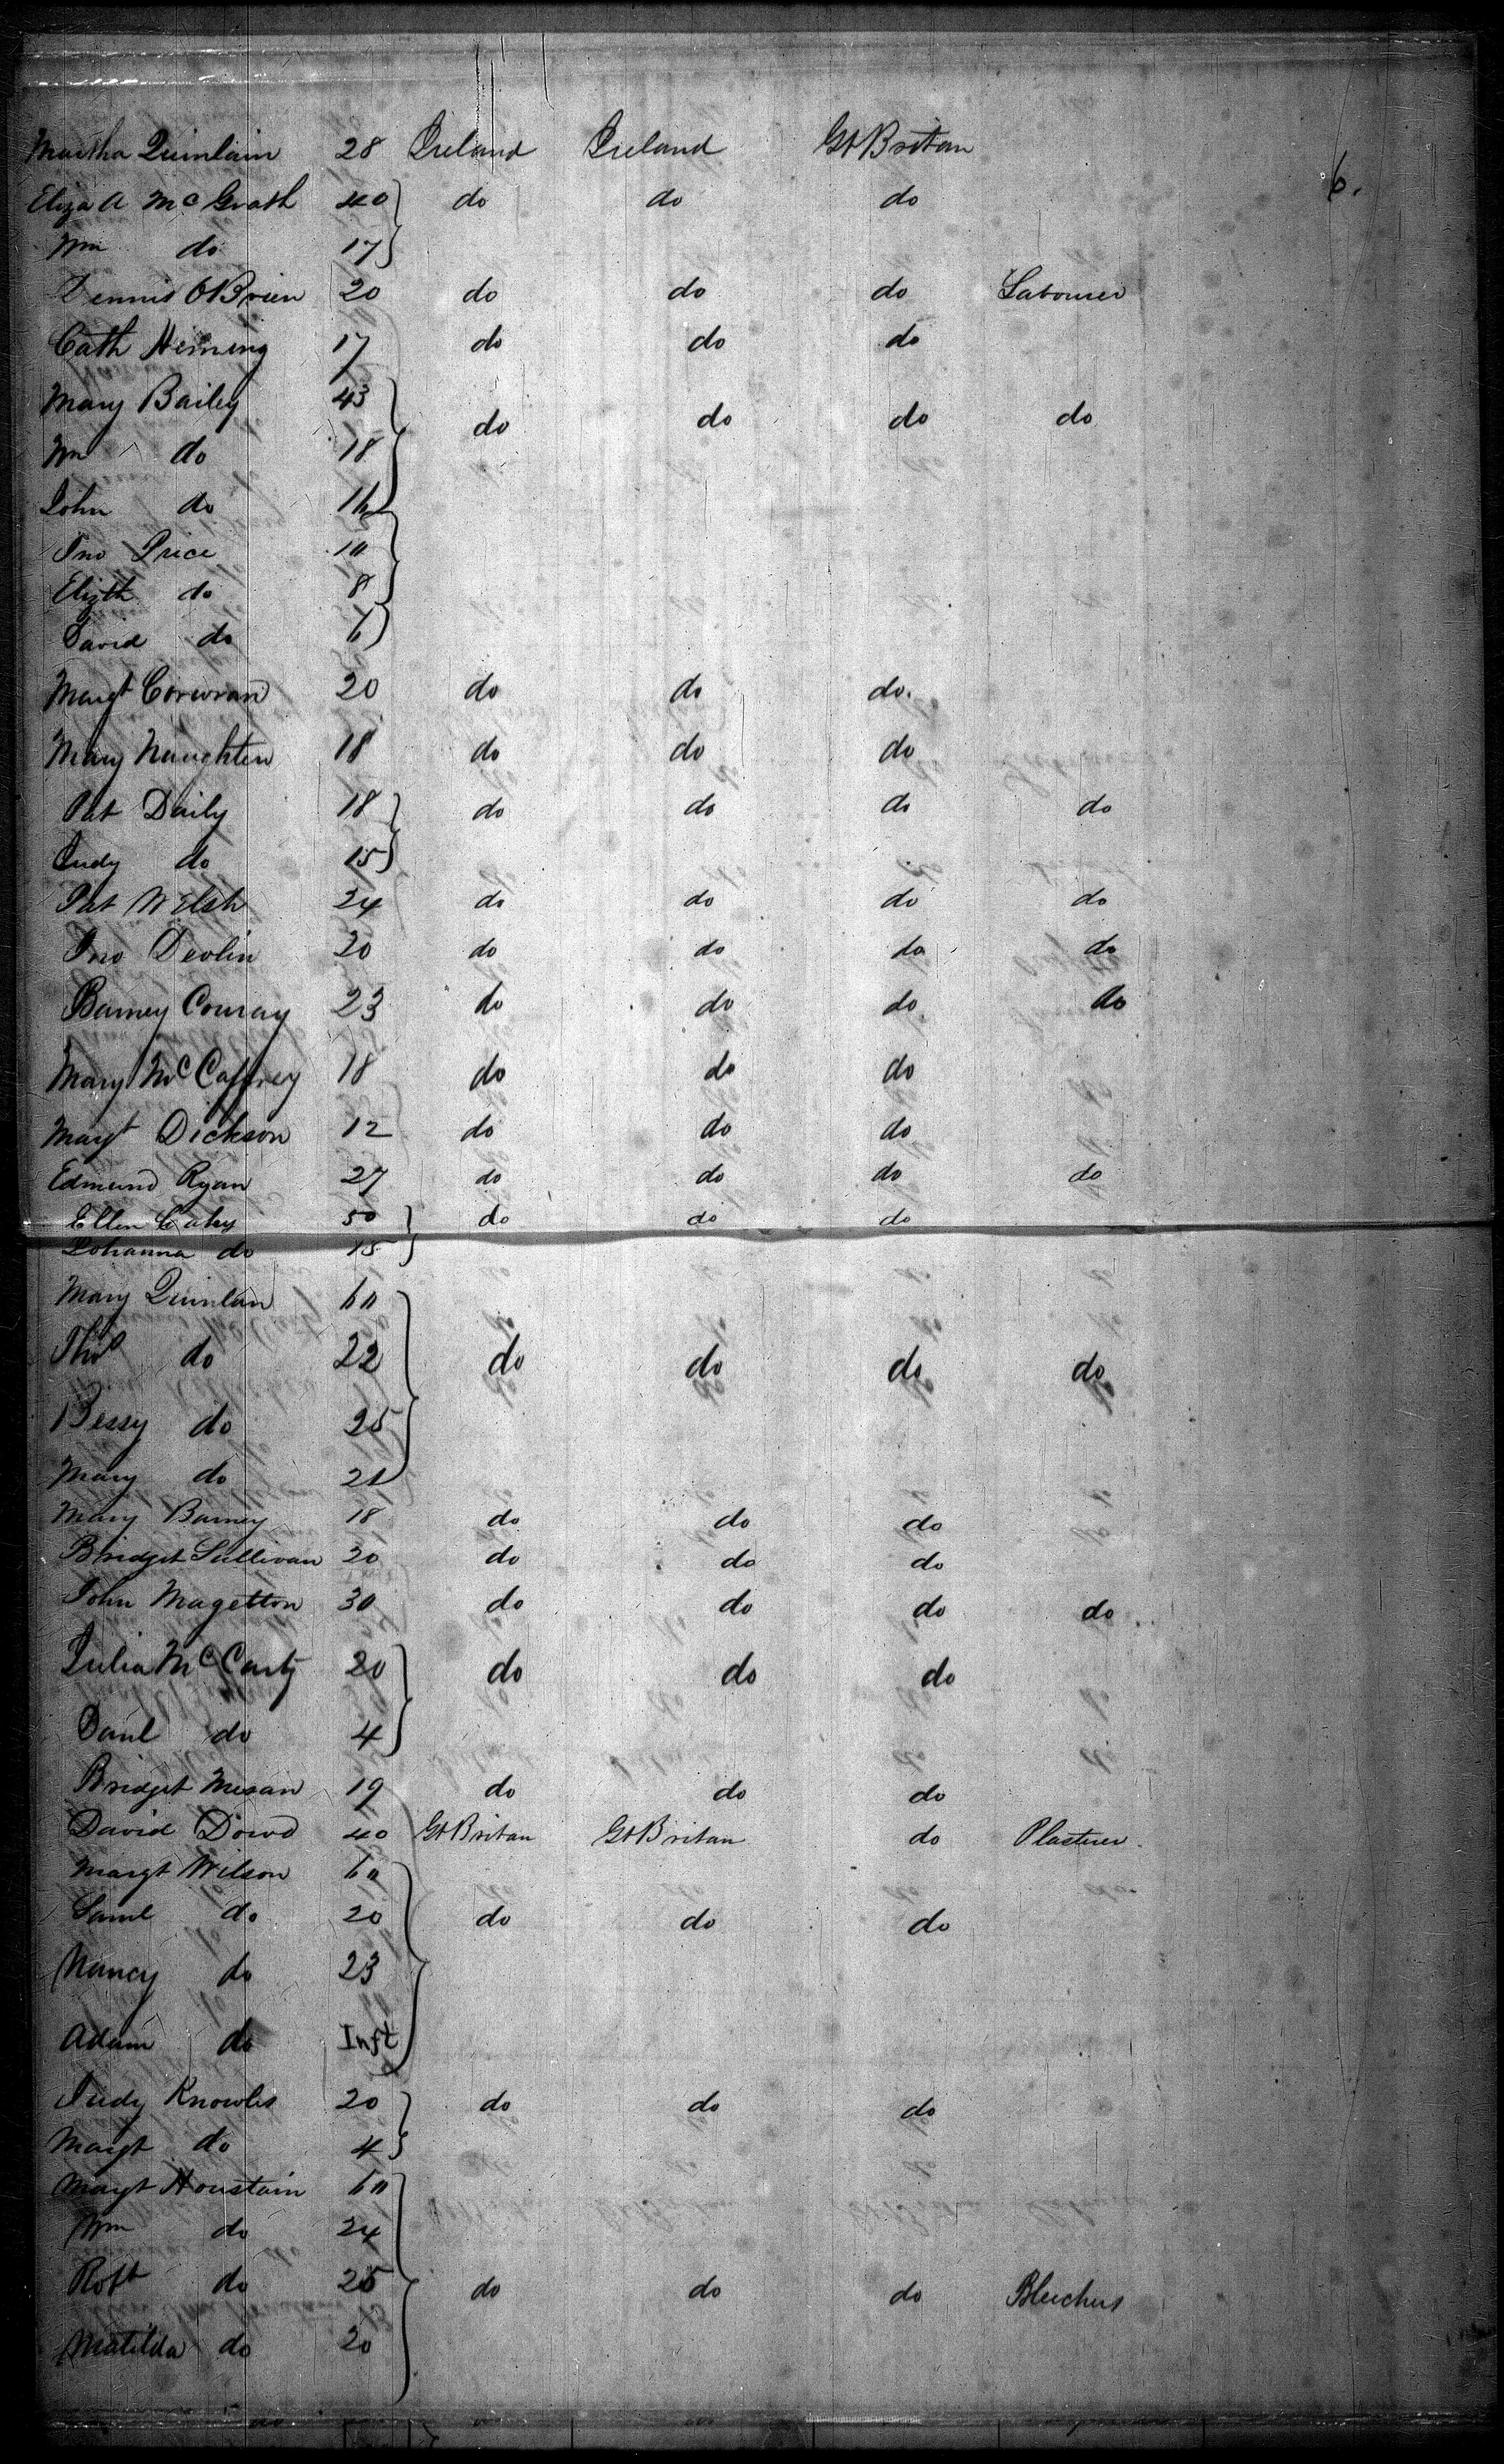 Martha Quinlain 28 Ireland Ireland Gt Britan
6.
Eliza A McGrath 40 do do do
Wm do 17
Dennis OBrien 20 do do do Labourer
Cath Heining 17 do do do
Mary Bailey 43 do do do do
Wm do 18
John do 16
Jno Price 10
Elizth do 8
David do 6
Margt Corwran 20 do do do.
Mary Naughten 18 do do do
Pat Daily 18 do do do do
Judy do 15
Pat Welsh 24 do do do do
Jno Devlin 20 do do do do
Barney Conray 23 do do do do
Mary McCaffrey 18 do do do
Margt Dickson 12 do do do
Edmund Ryan 27 do do do do
Ellen Cahy 50 do do do
Johanna do 15
Mary Quinlan 60
Thos do 22 do do do do
Bessy do 25
Mary do 21
Mary Barney 18 do do do
Bridget Sullivan 20 do do do
John Magetton 30 do do do do
Julia McCarty 20 do do do
Danl do 4
Bridget Mesan 19 do do do
David Dowd 40 Gt Britan Gt Britan do Plasterer.
Margt Wilson 60
Saml do 20 do do do
Nancy do 23
Adam do Inft
Judy Knowles 20 do do do
Margt do 4
Margt Houstain 60
Wm do 24
Robt do 25 do do do Bleichers
Matilda do 20